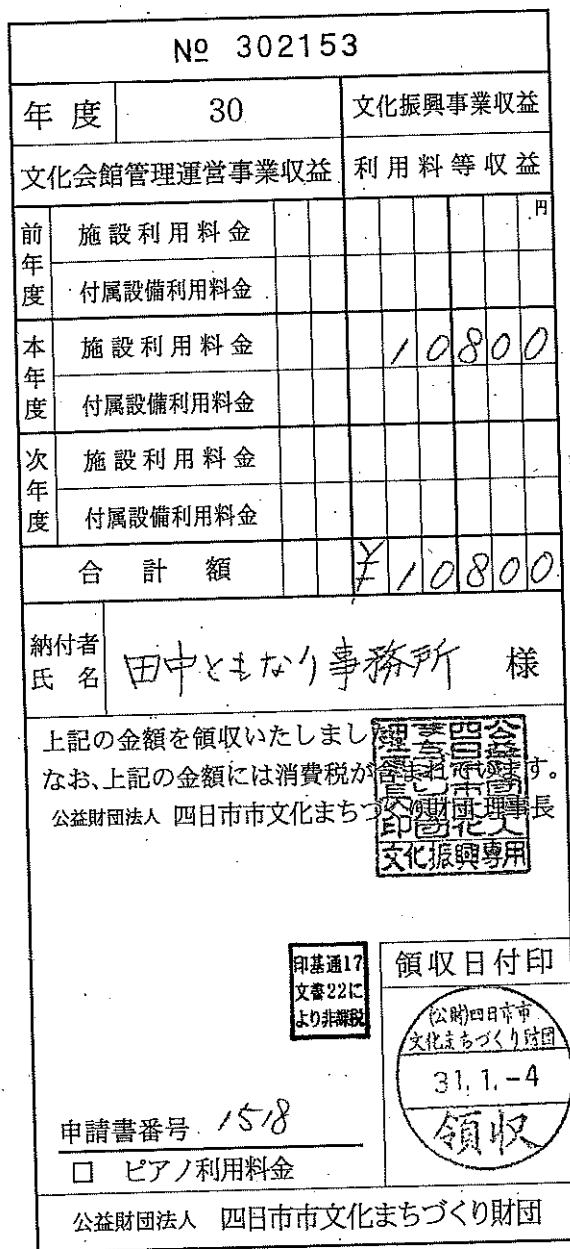 № 302153
年度 30 文化振興事業収益
文化会館管理運営事業収益 利用料等収益
前年度 施設利用料金 円
付属設備利用料金
本年度 施設利用料金 10800
付属設備利用料金
次年度 施設利用料金
付属設備利用料金
合計額 ¥10800
納付者氏名 田中ともなり事務所 様
上記の金額を領収いたしまし
なお、上記の金額には消費税が含まれています。
公益財団法人 四日市市文化まちづくり財団理事長
文化振興専用
印基通17
文書22に
より非課税
領収日付印
(公財)四日市市
文化まちづくり財団
31.1.-4
領収
申請書番号 1518
□ ピアノ利用料金
公益財団法人 四日市市文化まちづくり財団